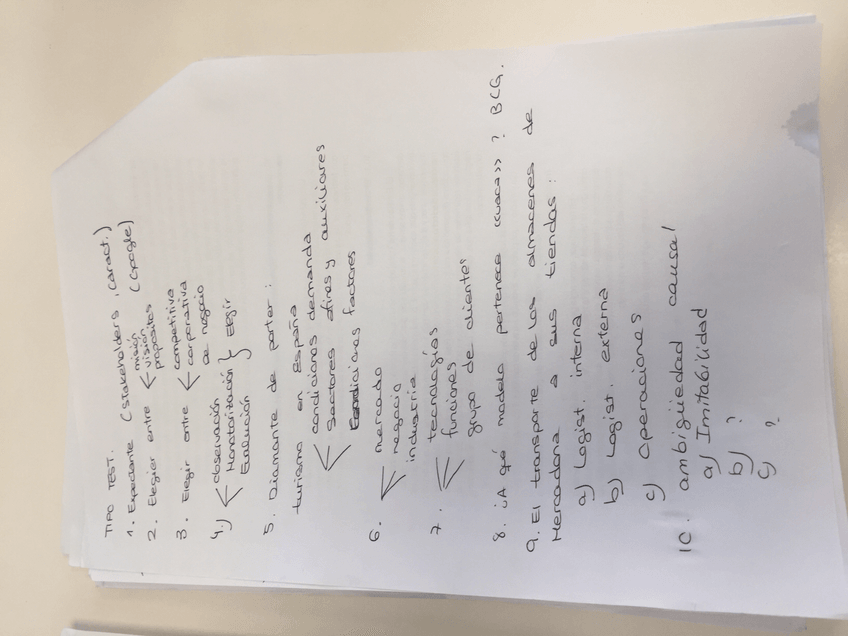 TIPO TEST.
1. Expectante (stakeholders, caract.)
2. Elegier entre < misión
visión (Google)
propósitos
3. Elegir entre < competitiva
corporativa
de negocio
4.) < observación
Monotorización } Elegir
Evaluación
5. Diamante de porter:
turismo en España
condiciones demanda
Sectores afines y auxiliares
Condiciones factores
6. < mercado
negocio
industria
7. < tecnologías
funciones
grupo de clientes
8. ¿A qué modelo pertenece <<vaca>>? BCG.
9. El transporte de los almacenes de
Mercadona a sus tiendas:
a) Logist. interna
b) Logist. externa
c) Operaciones
10. ambigüedad causal
a) Imitabilidad
b) ?
c) ?